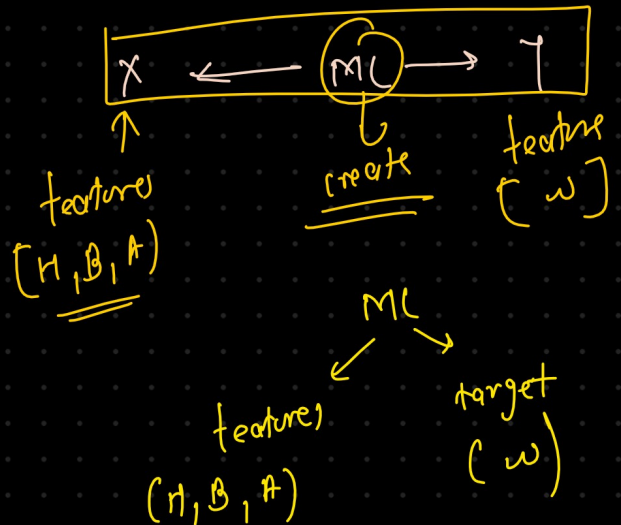 X ← ML → Y
features
[H, B, A)
create
feature
[W]
ML
features
(H, B, A)
target
(W)